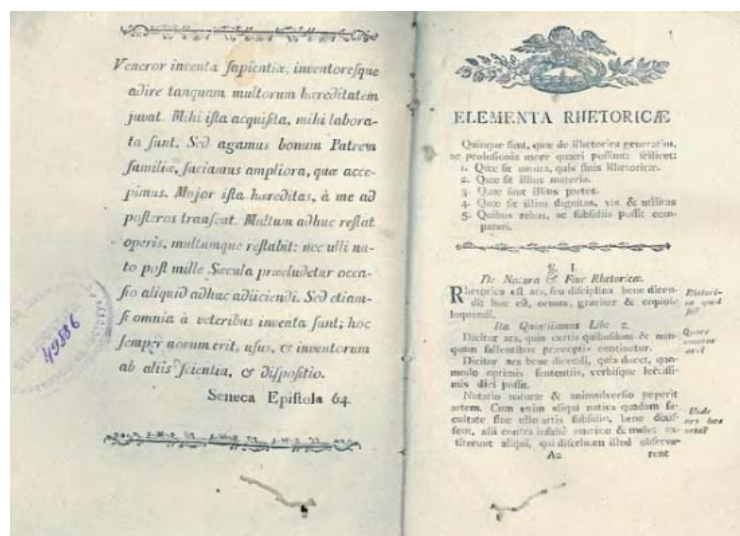 Veneror inventa ſapientiæ, inventoreſque
adire tanquam multorum hæreditatem
juvat. Mihi iſta acquiſita, mihi labora-
ta ſunt. Sed agamus bonum Patrem
familiæ, faciamus ampliora, quæ acce-
pimus. Major iſta hæreditas, à me ad
poſteros tranſeat. Multum adhuc reſtat
operis, multumque reſtabit: nec ulli na-
to poſt mille Sæcula præcludetur occa-
ſio aliquid adhuc adjiciendi. Sed etiam-
ſi omnia à veteribus inventa ſunt; hoc
ſemper novum erit, uſus, & inventorum
ab aliis ſcientia, & diſpoſitio.
Seneca Epiſtola 64.
49386
ELEMENTA RHETORICÆ
Quinque ſunt, quæ de Rhetorica generatim,
ac proluſionis more quæri poſſunt: ſcilicet:
1. Quæ ſit natura, quis finis Rhetoricæ.
2. Quæ ſit illius materia.
3. Quæ ſint illius partes.
4. Quæ ſit illius dignitas, vis & utilitas
5. Quibus rebus, ac ſubſidiis poſſit com-
parari.
§. I.
De Natura & Fine Rhetoricæ.
Rhetorica eſt ars, ſeu diſciplina bene dicen-
di: hoc eſt, ornate, graviter & copioſe
loquendi.
Rhetori-
ca quid
ſit?
Ita Quintilianus Lib: 2.
Dicitur ars, quia certis quibuſdam & nun-
quam fallentibus præceptis continetur.
Dicitur ars bene dicendi, quia docet, quo-
modo optimis ſententiis, verbiſque lectiſſi-
mis dici poſſit.
Notatio naturæ & animadverſio peperit
artem. Cum enim aliqui nativa quadam fa-
cultate ſine ullo artis ſubſidio, bene dixiſ-
ſent, alii contra & male; ex-
titerunt aliqui, qui illud obſerva-
Unde
ars hæc
orta?
Aa
rent